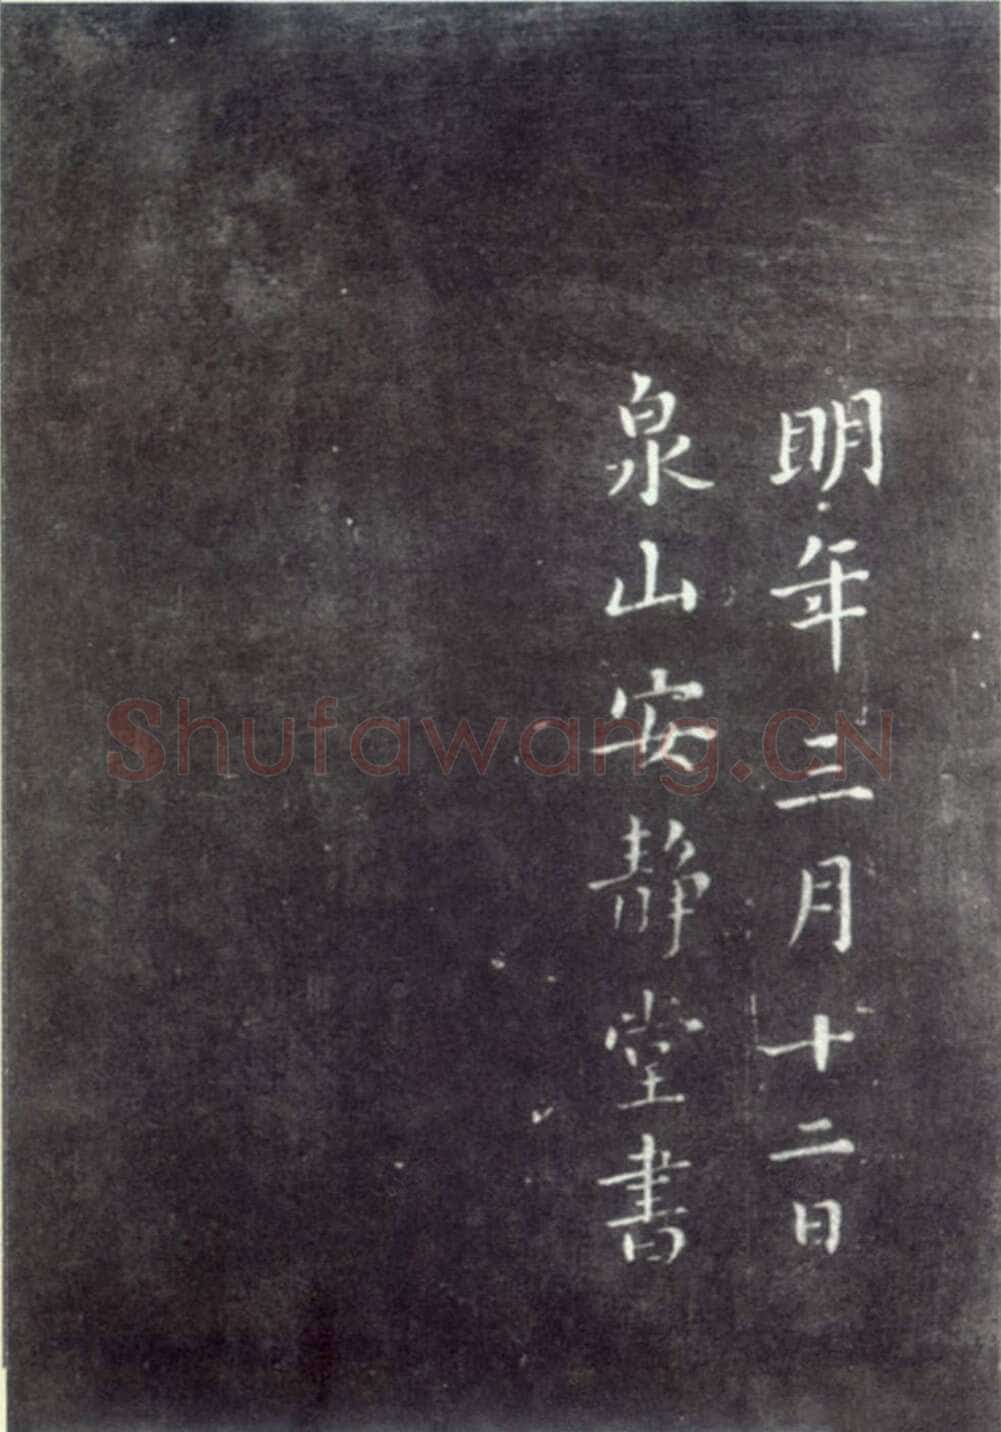 明年三月十二日
泉山安靜堂書
Shufawang.CN